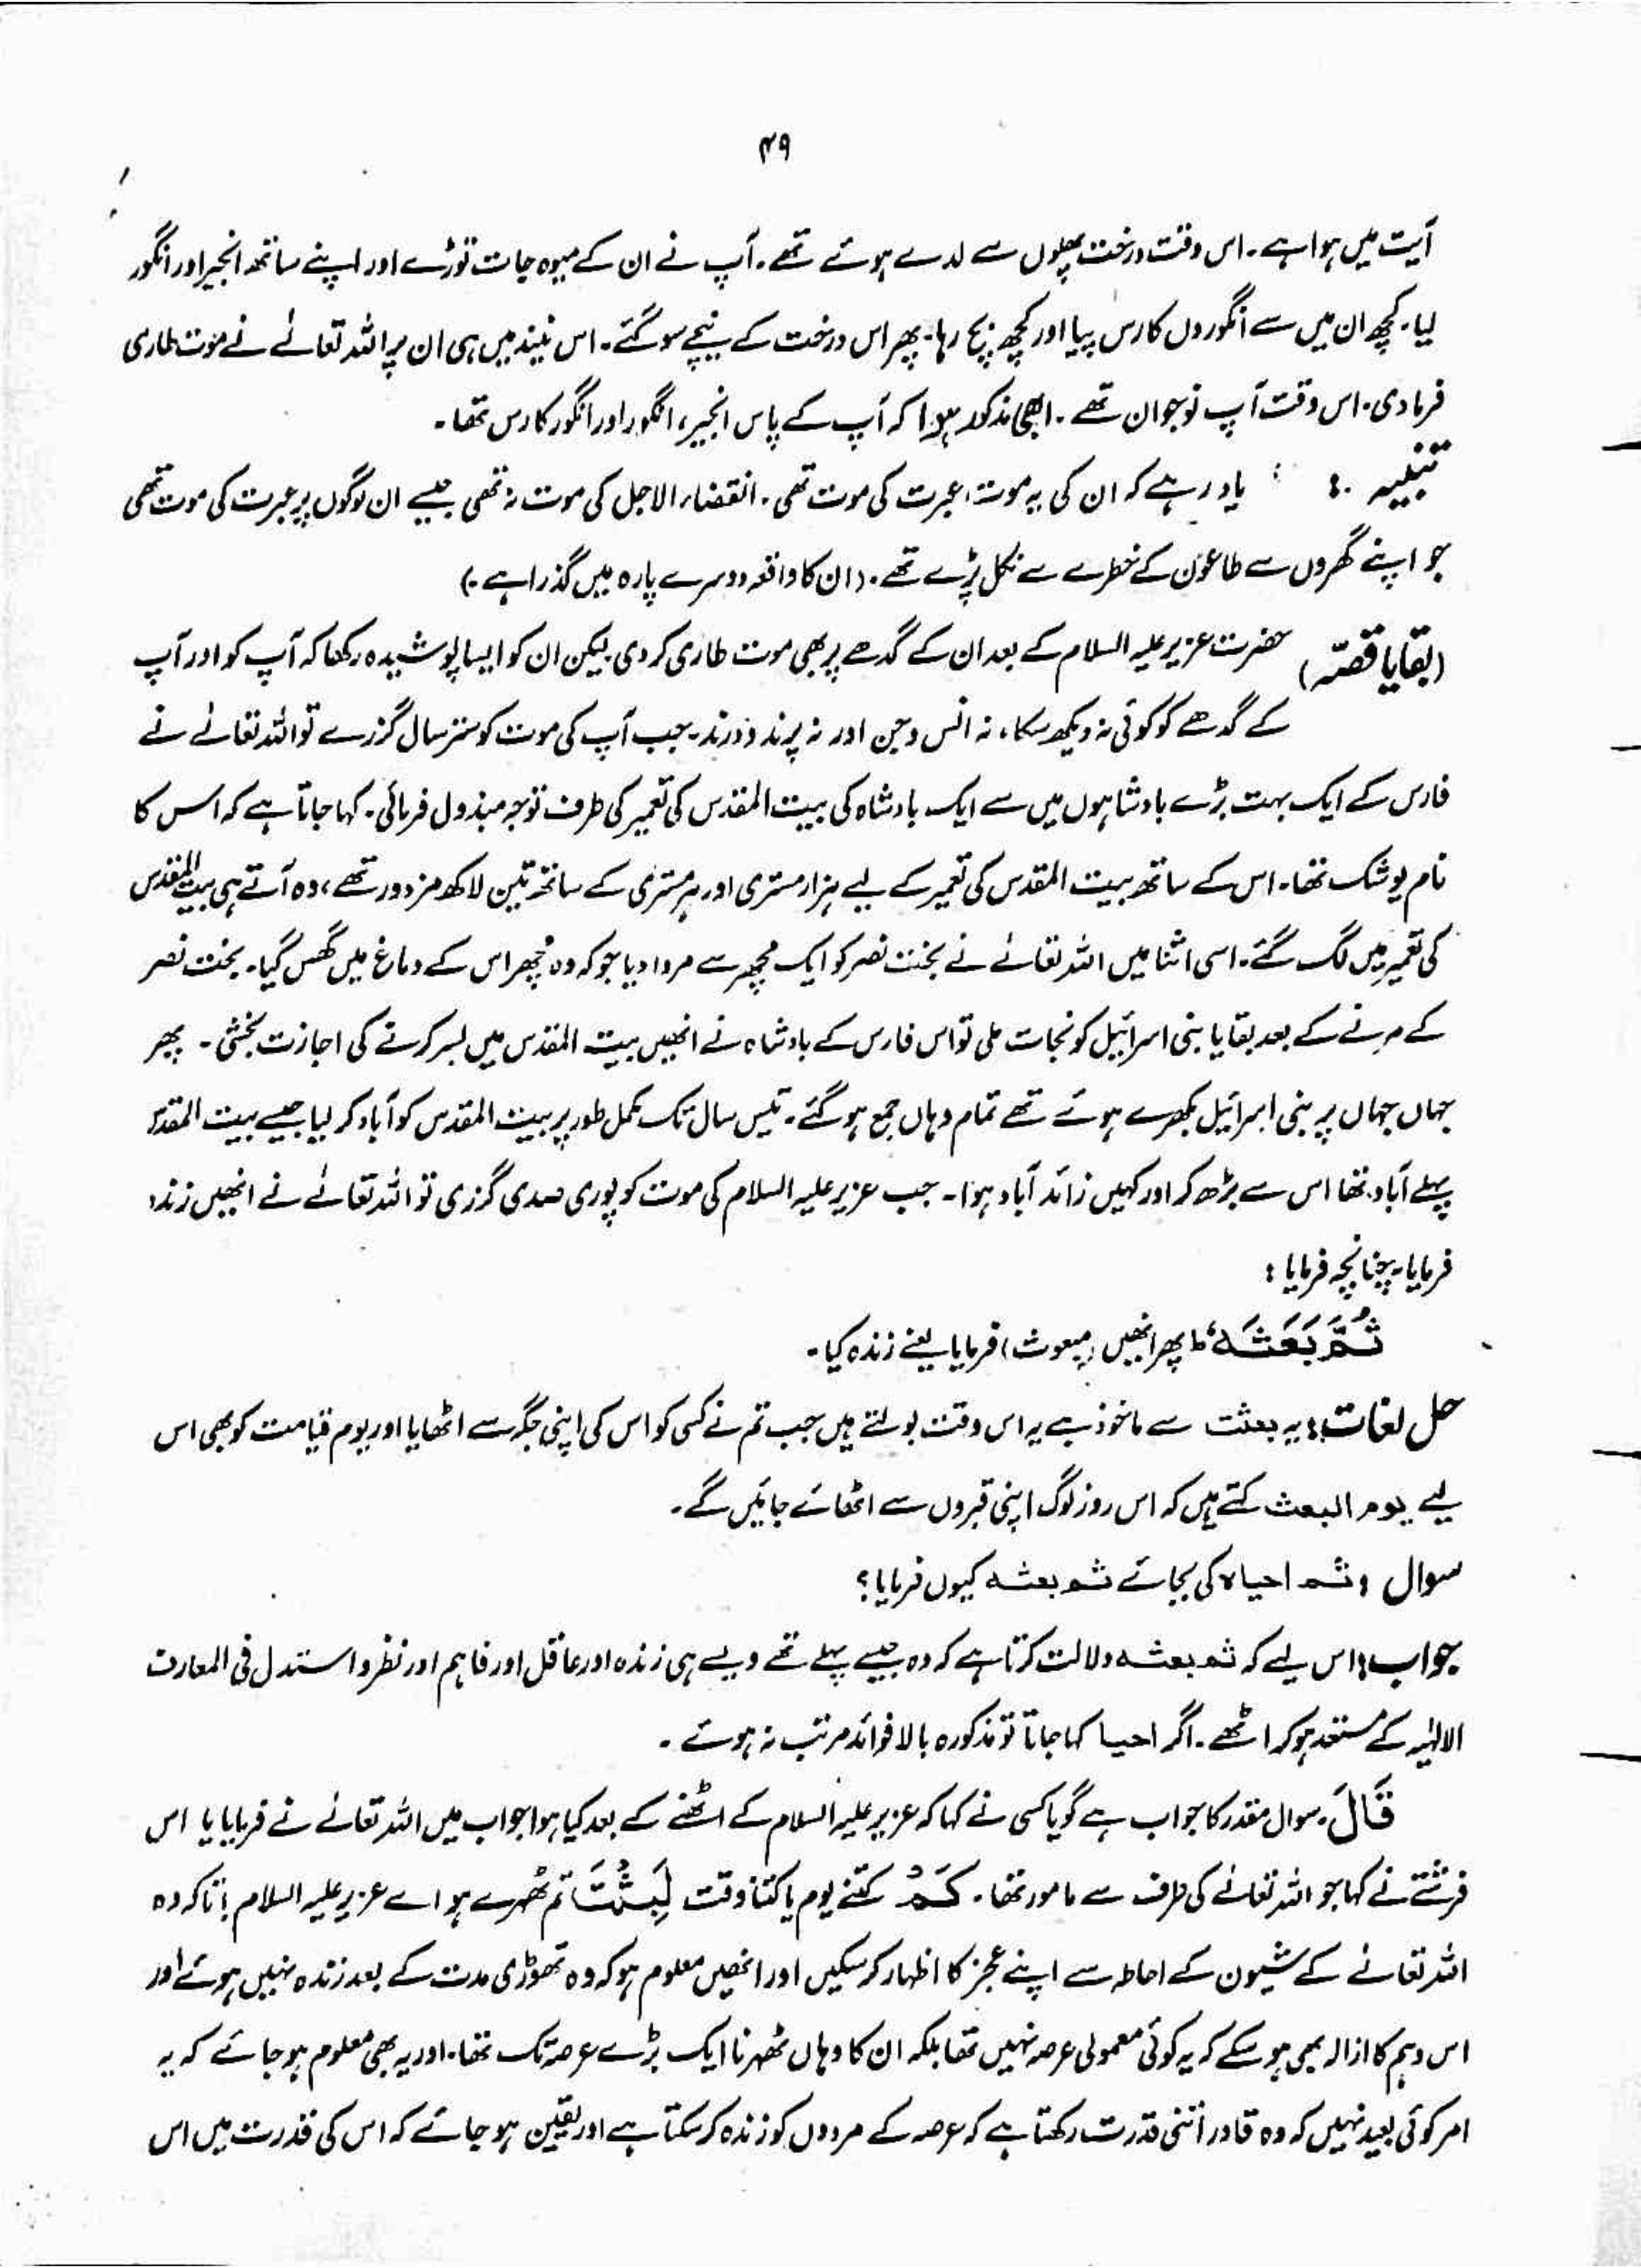 ۴۹
آیت میں ہوا ہے۔ اس وقت درخت پھلوں سے لدے ہوئے تھے۔ آپ نے ان کے میوہ جات توڑے اور اپنے ساتھ انجیر اور انگور
لیا۔ کچھ ان میں سے انگوروں کا رس پیا اور کچھ بچ رہا۔ پھر اس درخت کے نیچے سو گئے۔ اس نیند میں ہی ان پر اللہ تعالےٰ نے موت طاری
فرما دی۔ اس وقت آپ نوجوان تھے۔ ابھی مذکور ہوا کہ آپ کے پاس انجیر، انگور اور انگور کا رس تھا۔
تنبیہ : یاد رہے کہ ان کی یہ موت، عبرت کی موت تھی۔ انقضاء الاجل کی موت نہ تھی جیسے ان لوگوں پر عبرت کی موت تھی
جو اپنے گھروں سے طاعون کے خطرے سے نکل پڑے تھے۔ (ان کا واقعہ دوسرے پارہ میں گذرا ہے۔)
(بقایا قصّہ) حضرت عزیر علیہ السلام کے بعد ان کے گدھے پر بھی موت طاری کر دی لیکن ان کو ایسا پوشیدہ رکھا کہ آپ کو اور آپ
کے گدھے کو کوئی نہ دیکھ سکا، نہ انس و جن اور نہ پرند و درند۔ جب آپ کی موت کو ستر سال گزرے تو اللہ تعالےٰ نے
فارس کے ایک بہت بڑے بادشاہوں میں سے ایک بادشاہ کی بیت المقدس کی تعمیر کی طرف توجہ مبذول فرمائی۔ کہا جاتا ہے کہ اس کا
نام یوشک تھا۔ اس کے ساتھ بیت المقدس کی تعمیر کے لیے ہزار مستری اور ہر مستری کے ساتھ تین لاکھ مزدور تھے، وہ آتے ہی بیت المقدس
کی تعمیر میں لگ گئے۔ اسی اثنا میں اللہ تعالےٰ نے بخت نصر کو ایک مچھر سے مروا دیا جو کہ وہ مچھر اس کے دماغ میں گھس گیا۔ بخت نصر
کے مرنے کے بعد بقایا بنی اسرائیل کو نجات ملی تو اس فارس کے بادشاہ نے انھیں بیت المقدس میں بسر کرنے کی اجازت بخشی۔ پھر
جہاں جہاں پر بنی اسرائیل بکھرے ہوئے تھے تمام وہاں جمع ہو گئے۔ تیس سال تک مکمل طور پر بیت المقدس کو آباد کر لیا جیسے بیت المقدس
پہلے آباد تھا اس سے بڑھ کر اور کہیں زائد آباد ہوا۔ جب عزیر علیہ السلام کی موت کو پوری صدی گزری تو اللہ تعالےٰ نے انھیں زندہ
فرمایا۔ چنانچہ فرمایا :
ثُمَّ بَعَثَہٗ ط پھر انھیں (مبعوث) فرمایا یعنے زندہ کیا۔
حل لغات : یہ بعثت سے ماخوذ ہے یہ اس وقت بولتے ہیں جب تم نے کسی کو اس کی اپنی جگہ سے اٹھایا اور یوم قیامت کو بھی اس
لیے یوم البعث کہتے ہیں کہ اس روز لوگ اپنی قبروں سے اٹھائے جائیں گے۔
سوال : ثم احیاہ کی بجائے ثم بعثہ کیوں فرمایا؟
جواب : اس لیے کہ ثم بعثہ دلالت کرتا ہے کہ وہ جیسے پہلے تھے ویسے ہی زندہ اور عاقل اور فاہم اور نظر و استدل فی المعارف
الالٰہیہ کے مستعد ہو کر اٹھے۔ اگر احیا کہا جاتا تو مذکورہ بالا فوائد مرتب نہ ہوتے۔
قَالَ۔ سوال مقدر کا جواب ہے گویا کسی نے کہا کہ عزیر علیہ السلام کے اٹھنے کے بعد کیا ہوا جواب میں اللہ تعالےٰ نے فرمایا یا اس
فرشتے نے کہا جو اللہ تعالےٰ کی طرف سے مامور تھا۔ کَمْ کتنے یوم یا کتنا وقت لَبِثْتَ تم ٹھہرے ہو اے عزیر علیہ السلام! تاکہ وہ
اللہ تعالےٰ کے شیون کے احاطہ سے اپنے عجز کا اظہار کر سکیں اور انھیں معلوم ہو کہ وہ تھوڑی مدت کے بعد زندہ نہیں ہوئے اور
اس وہم کا ازالہ بھی ہو سکے کہ یہ کوئی معمولی عرصہ نہیں تھا بلکہ ان کا وہاں ٹھہرنا ایک بڑے عرصہ تک تھا۔ اور یہ بھی معلوم ہو جائے کہ یہ
امر کوئی بعید نہیں کہ وہ قادر اتنی قدرت رکھتا ہے کہ عرصہ کے مردوں کو زندہ کر سکتا ہے اور یقین ہو جائے کہ اس کی قدرت میں اس